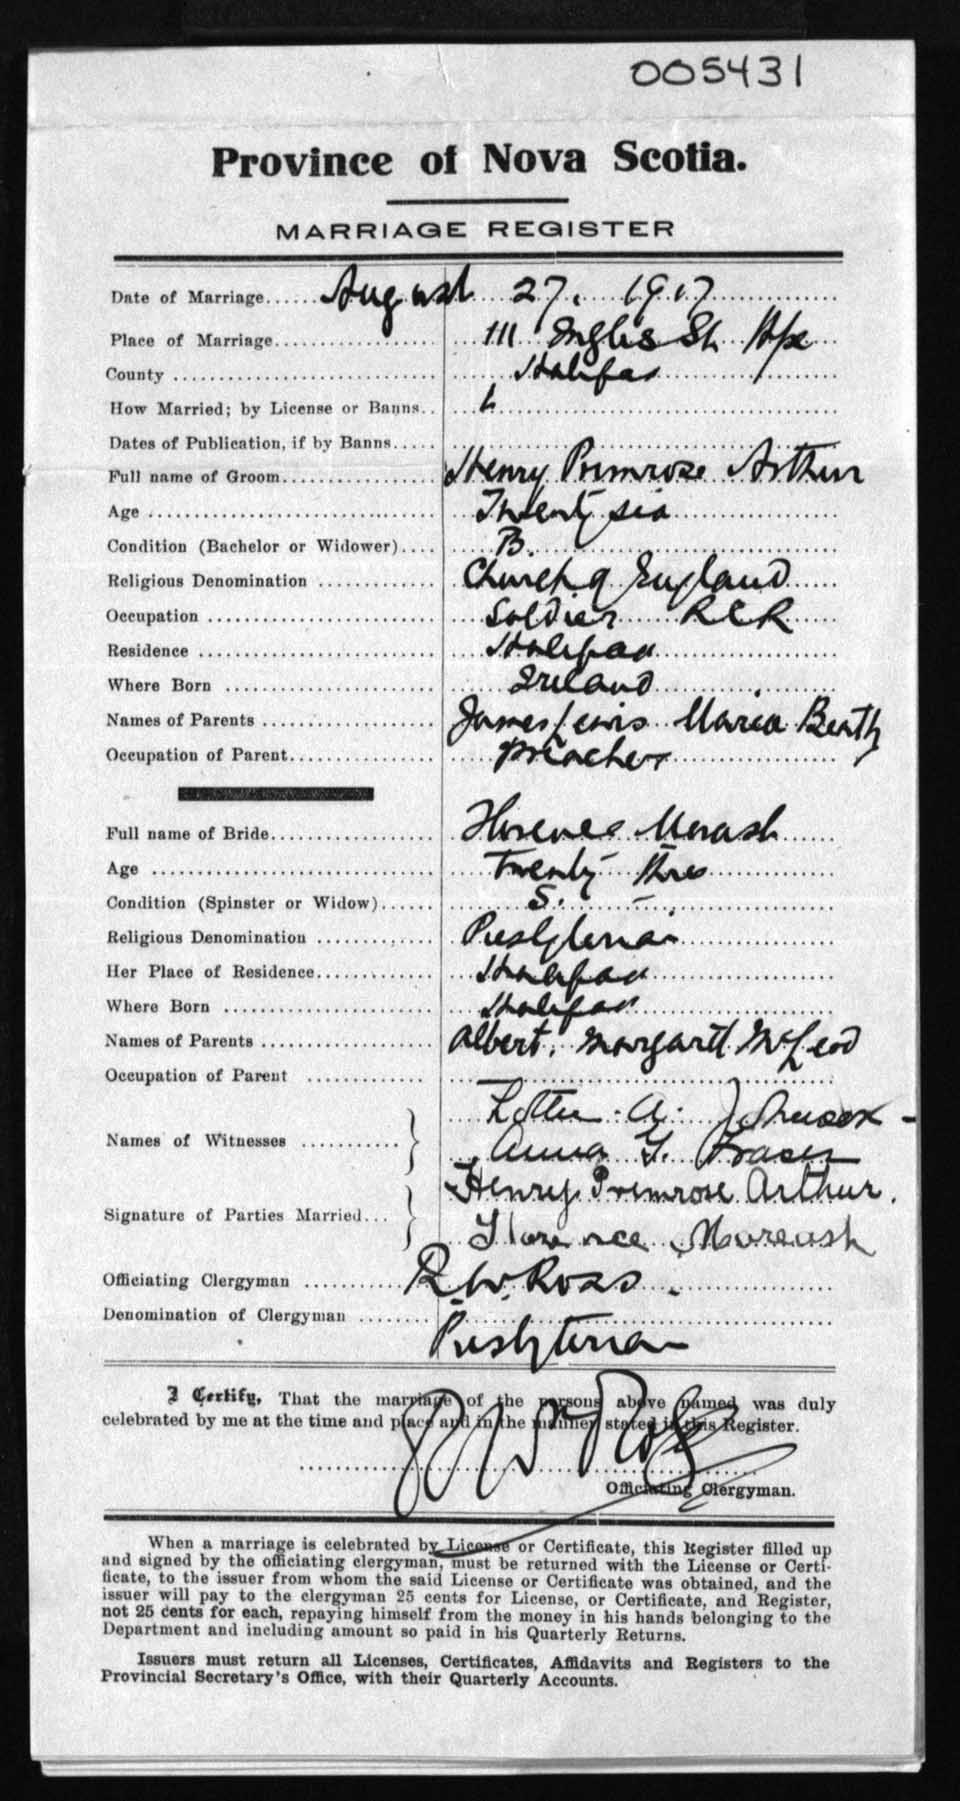 005431
Province of Nova Scotia.
MARRIAGE REGISTER
Date of Marriage August 27, 1917
Place of Marriage 111 Inglis St. Hfx
County Halifax
How Married; by License or Banns L
Dates of Publication, if by Banns
Full name of Groom Henry Primrose Arthur
Age Twenty six
Condition (Bachelor or Widower) B.
Religious Denomination Church of England
Occupation Soldier RCR
Residence Halifax
Where Born Ireland
Names of Parents James Lewis Maria Beath
Occupation of Parent preacher
Full name of Bride Florence Marash
Age Twenty three
Condition (Spinster or Widow) S.
Religious Denomination Presbyterian
Her Place of Residence Halifax
Where Born Halifax
Names of Parents Albert, Margarett McLeod
Occupation of Parent
Names of Witnesses Lottie A. Johnson
Anna G. Fraser
Signature of Parties Married Henry Primrose Arthur.
Florence Mareash
Officiating Clergyman R.W. Ross.
Denomination of Clergyman
Presbyterian
I Certify, That the marriage of the persons above named was duly
celebrated by me at the time and place and in the manner stated in this Register.
R W Ross
Officiating Clergyman.
When a marriage is celebrated by License or Certificate, this Register filled up
and signed by the officiating clergyman, must be returned with the License or Certi-
ficate, to the issuer from whom the said License or Certificate was obtained, and the
issuer will pay to the clergyman 25 cents for License, or Certificate, and Register,
not 25 cents for each, repaying himself from the money in his hands belonging to the
Department and including amount so paid in his Quarterly Returns.
Issuers must return all Licenses, Certificates, Affidavits and Registers to the
Provincial Secretary's Office, with their Quarterly Accounts.